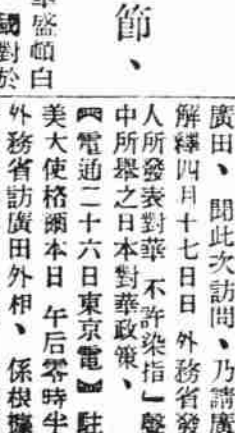 節、
盛頓白
國對於
廣田、聞此次訪問、乃請廣
解繹四月十七日日外務省發
人所發表對華 不許染指」聲
中所舉之日本對華政策、
【電通二十六日東京電】駐
美大使格爾本日 午后零時半
外務省訪廣田外相、係根據